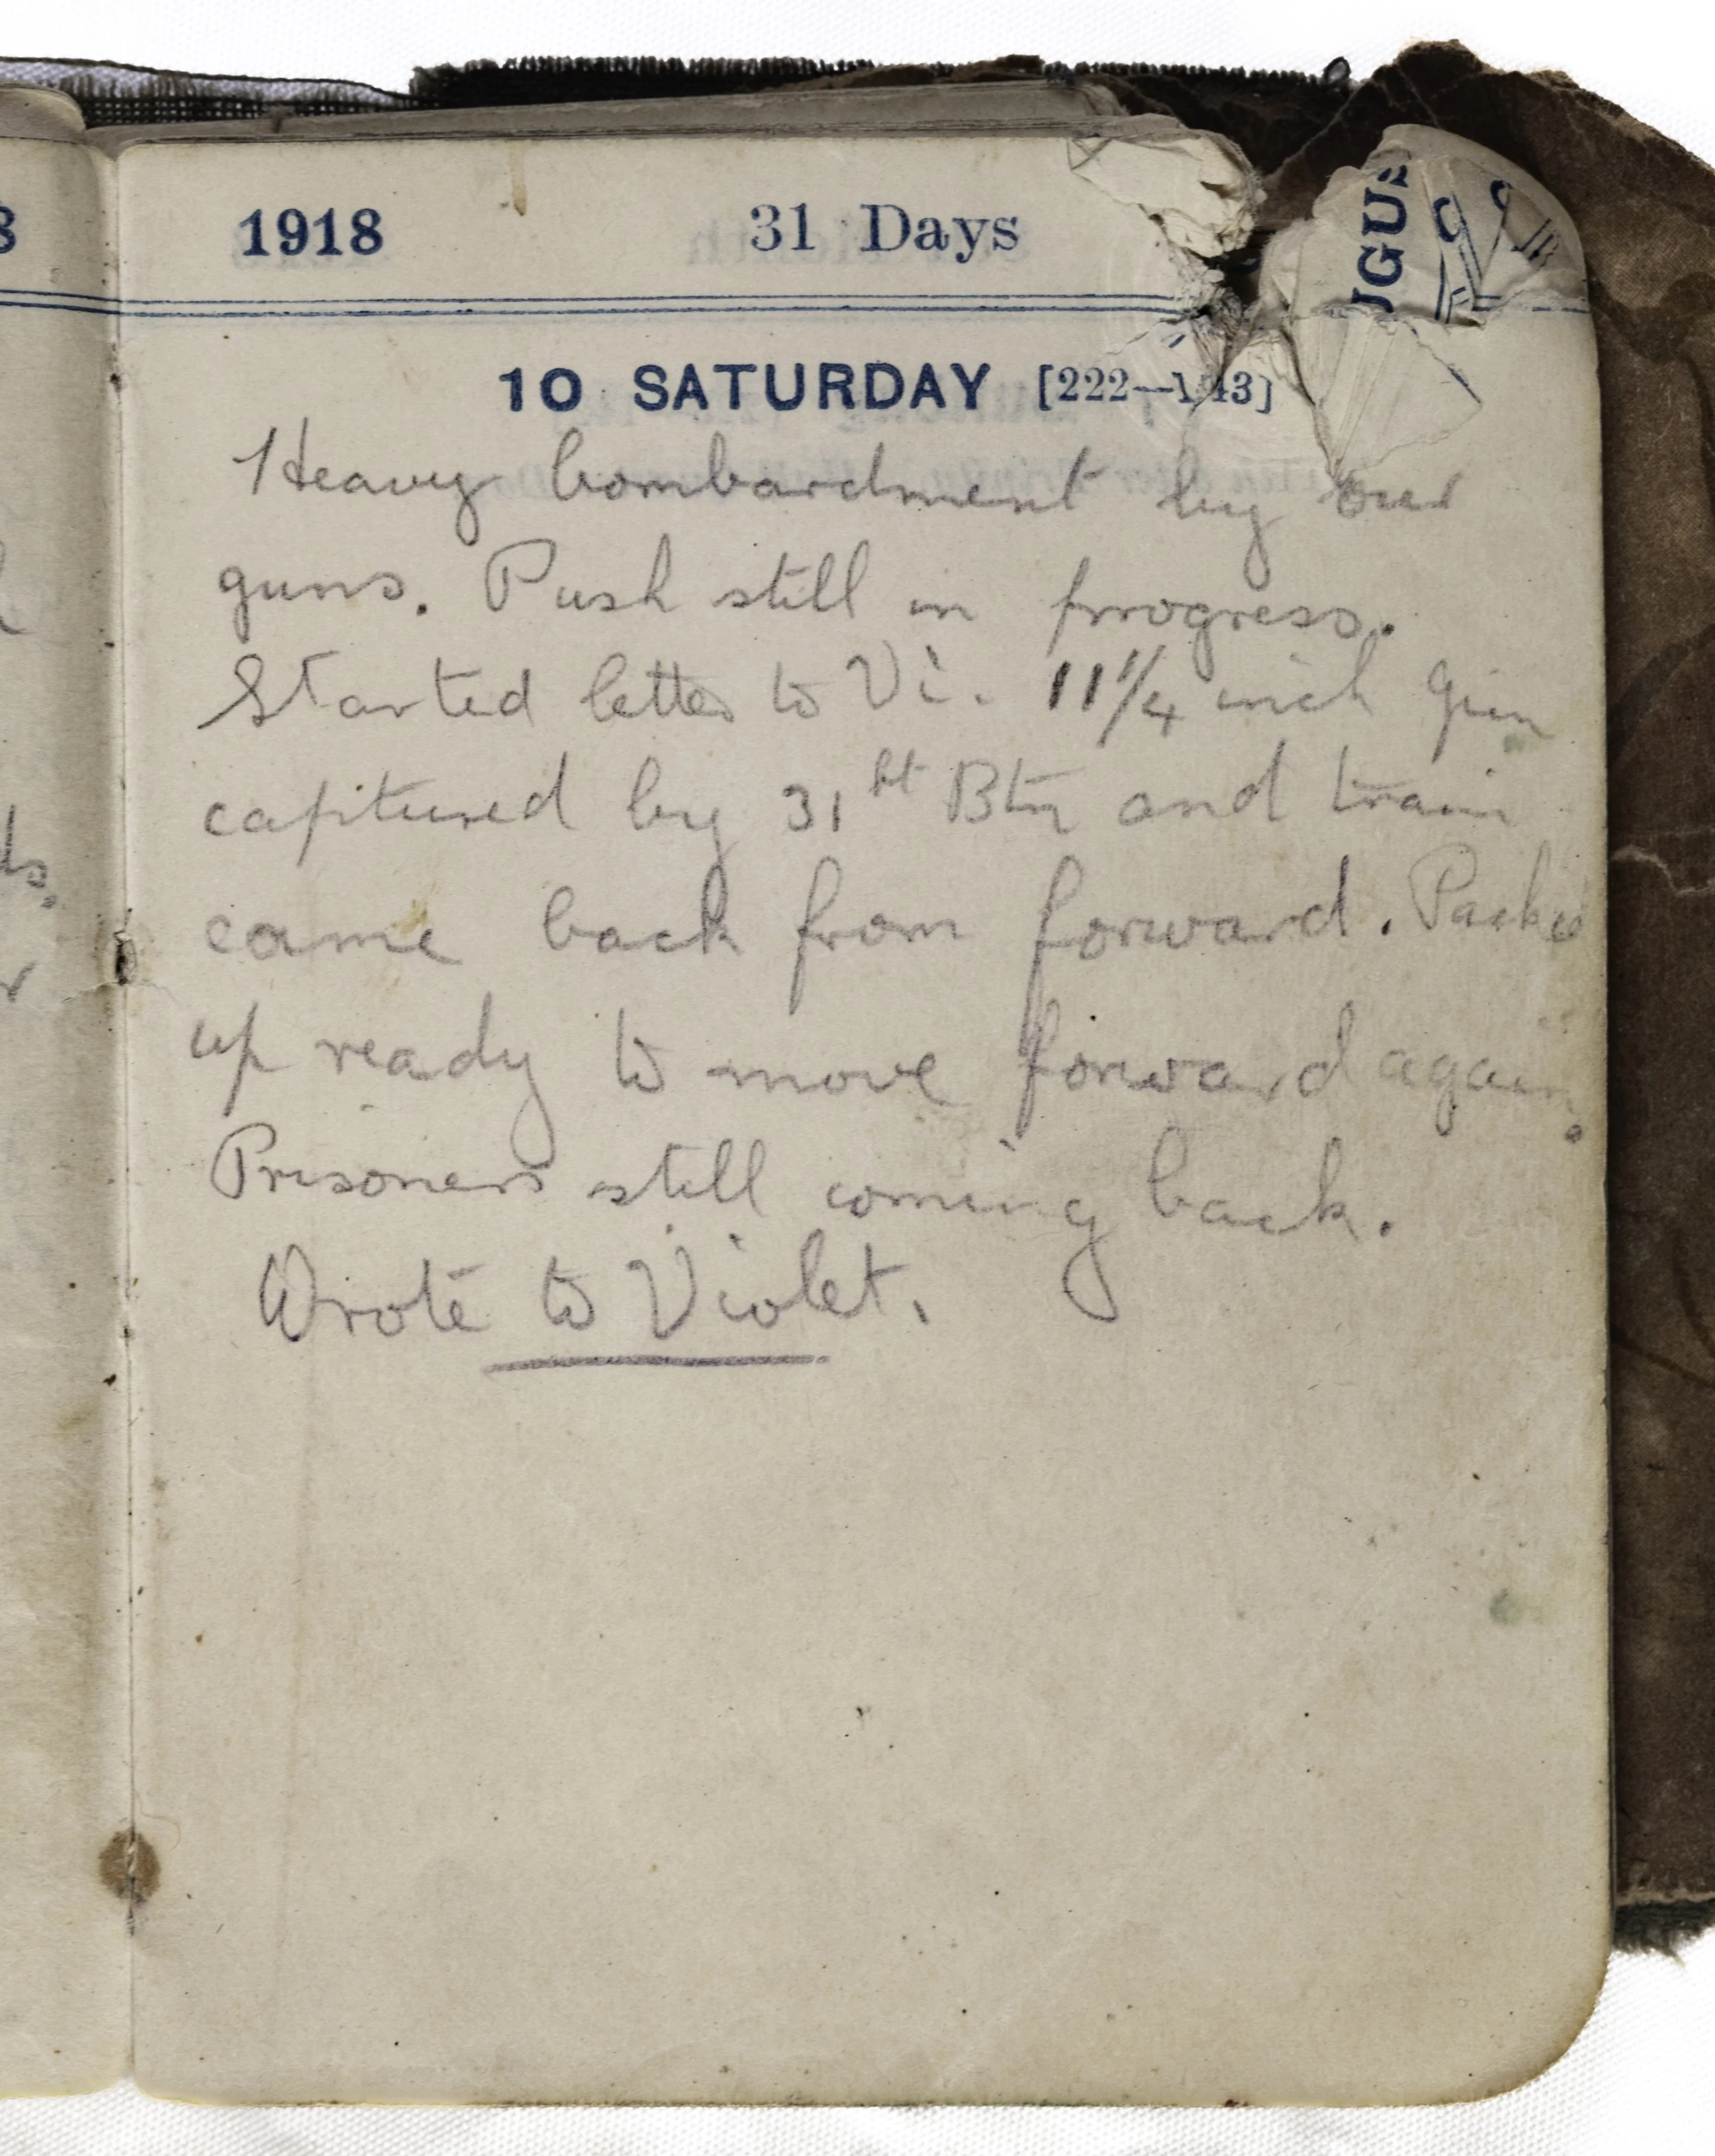 1918 31 Days
10 SATURDAY [222—143]
Heavy bombardment by our
guns. Push still in progress.
Started letter to Vi. 11¼ inch gun
captured by 31st Btn and train
came back from forward. Packed
up ready to move forward again.
Prisoners still coming back.
Wrote to Violet.